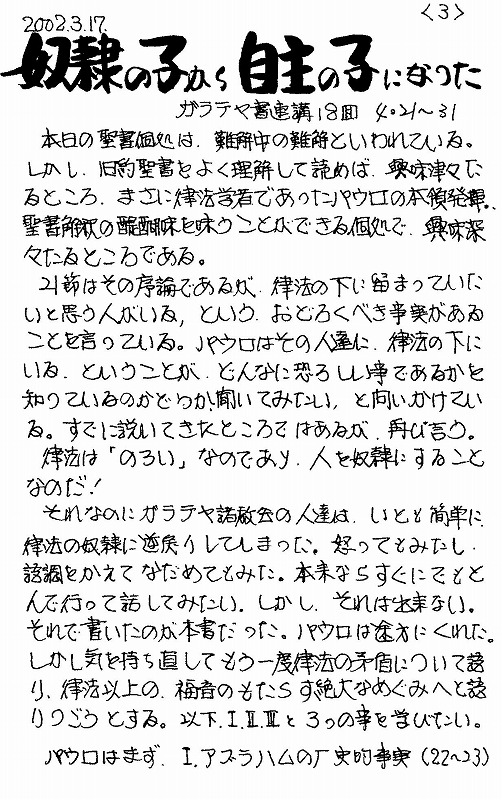 2002.3.17.
<3>
奴隷の子から自主の子になった
ガラテヤ書連講18回 4・21〜31
本日の聖書個処は、難解中の難解といわれている。
しかし、旧約聖書をよく理解して読めば、興味津々た
るところ、まさに律法学者であったパウロの本領発揮、
聖書解釈の醍醐味を味うことができる個処で、興味深
々たるところである。
21節はその序論であるが、律法の下に留まっていた
いと思う人がいる、という、おどろくべき事実がある
ことを言っている。パウロはその人達に、律法の下に
いる、ということが、どんなに恐ろしい事であるかを
知っているのかどうか、聞いてみたい、と問いかけてい
る。すでに説いてきたところではあるが、再び言う。
律法は「のろい」なのであり、人を奴隷にすること
なのだ!
それなのにガラテヤ諸教会の人達は、いとも簡単に
律法の奴隷に逆戻りしてしまった。怒ってもみたし、
語調をかえてなだめてもみた。本来ならすぐにでもと
んで行って話してみたい。しかし、それは出来ない。
それで書いたのが本書だった。パウロは途方にくれた。
しかし気を持ち直してもう一度律法の矛盾について語
り、律法以上の、福音のもたらす絶大なめぐみへと語
りつごうとする。以下、I.II.IIIと3つの事を学びたい。
パウロはまず、I.アブラハムの厂史的事実(22〜23)